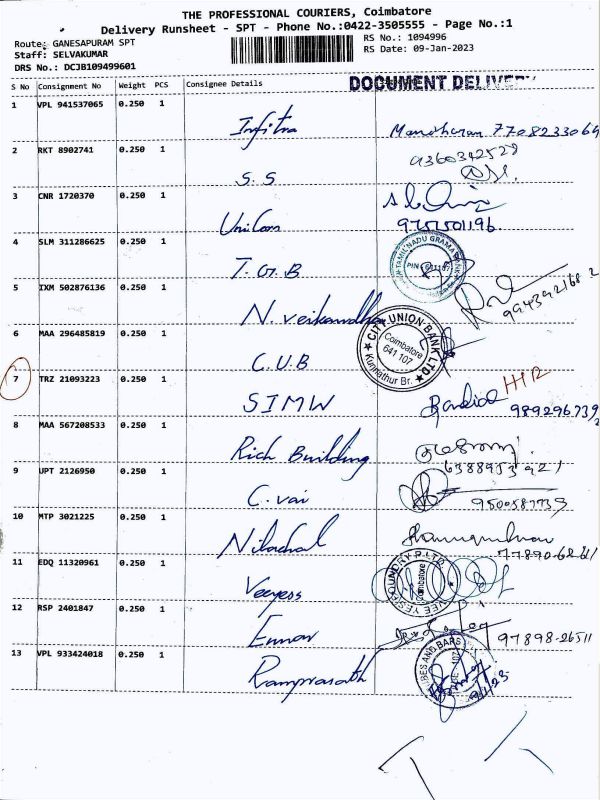 THE PROFESSIONAL COURIERS, Coimbatore
Delivery Runsheet - SPT - Phone No.:0422-3505555 - Page No.:1
Route: GANESAPURAM SPT
RS No.: 1094996
Staff: SELVAKUMAR
RS Date: 09-Jan-2023
DRS No.: DCJB109499601
S No Consignment No Weight PCS Consignee Details
DOCUMENT DELIVERY
1 VPL 941537065 0.250 1
Infitra Manoharan 7708233069
2 RKT 8902741 0.250 1
9360342529
S.S
3 CNR 1720370 0.250 1
Unicorn 9751501196
4 SLM 311286625 0.250 1
TAMILNADU GRAMA BANK
PIN 641107
T.G.B
5 IXM 502876136 0.250 1
N. 9943921682
6 MAA 296485819 0.250 1
CITY UNION BANK LTD
Coimbatore
641 107
Kunnathur Br.
C.U.B
7 TRZ 21093223 0.250 1
HR
SIMW 9892967392
8 MAA 567208533 0.250 1
Rich Building
9 UPT 2126950 0.250 1
C. vai 9500587739
10 MTP 3021225 0.250 1
Nilachal
11 EDQ 11320961 0.250 1
FOUNDRY P.LTD.
Coimbatore
Veeyess
12 RSP 2401847 0.250 1
Ennar 97898-26511
13 VPL 933424018 0.250 1
BES AND BARS
Ramprasath